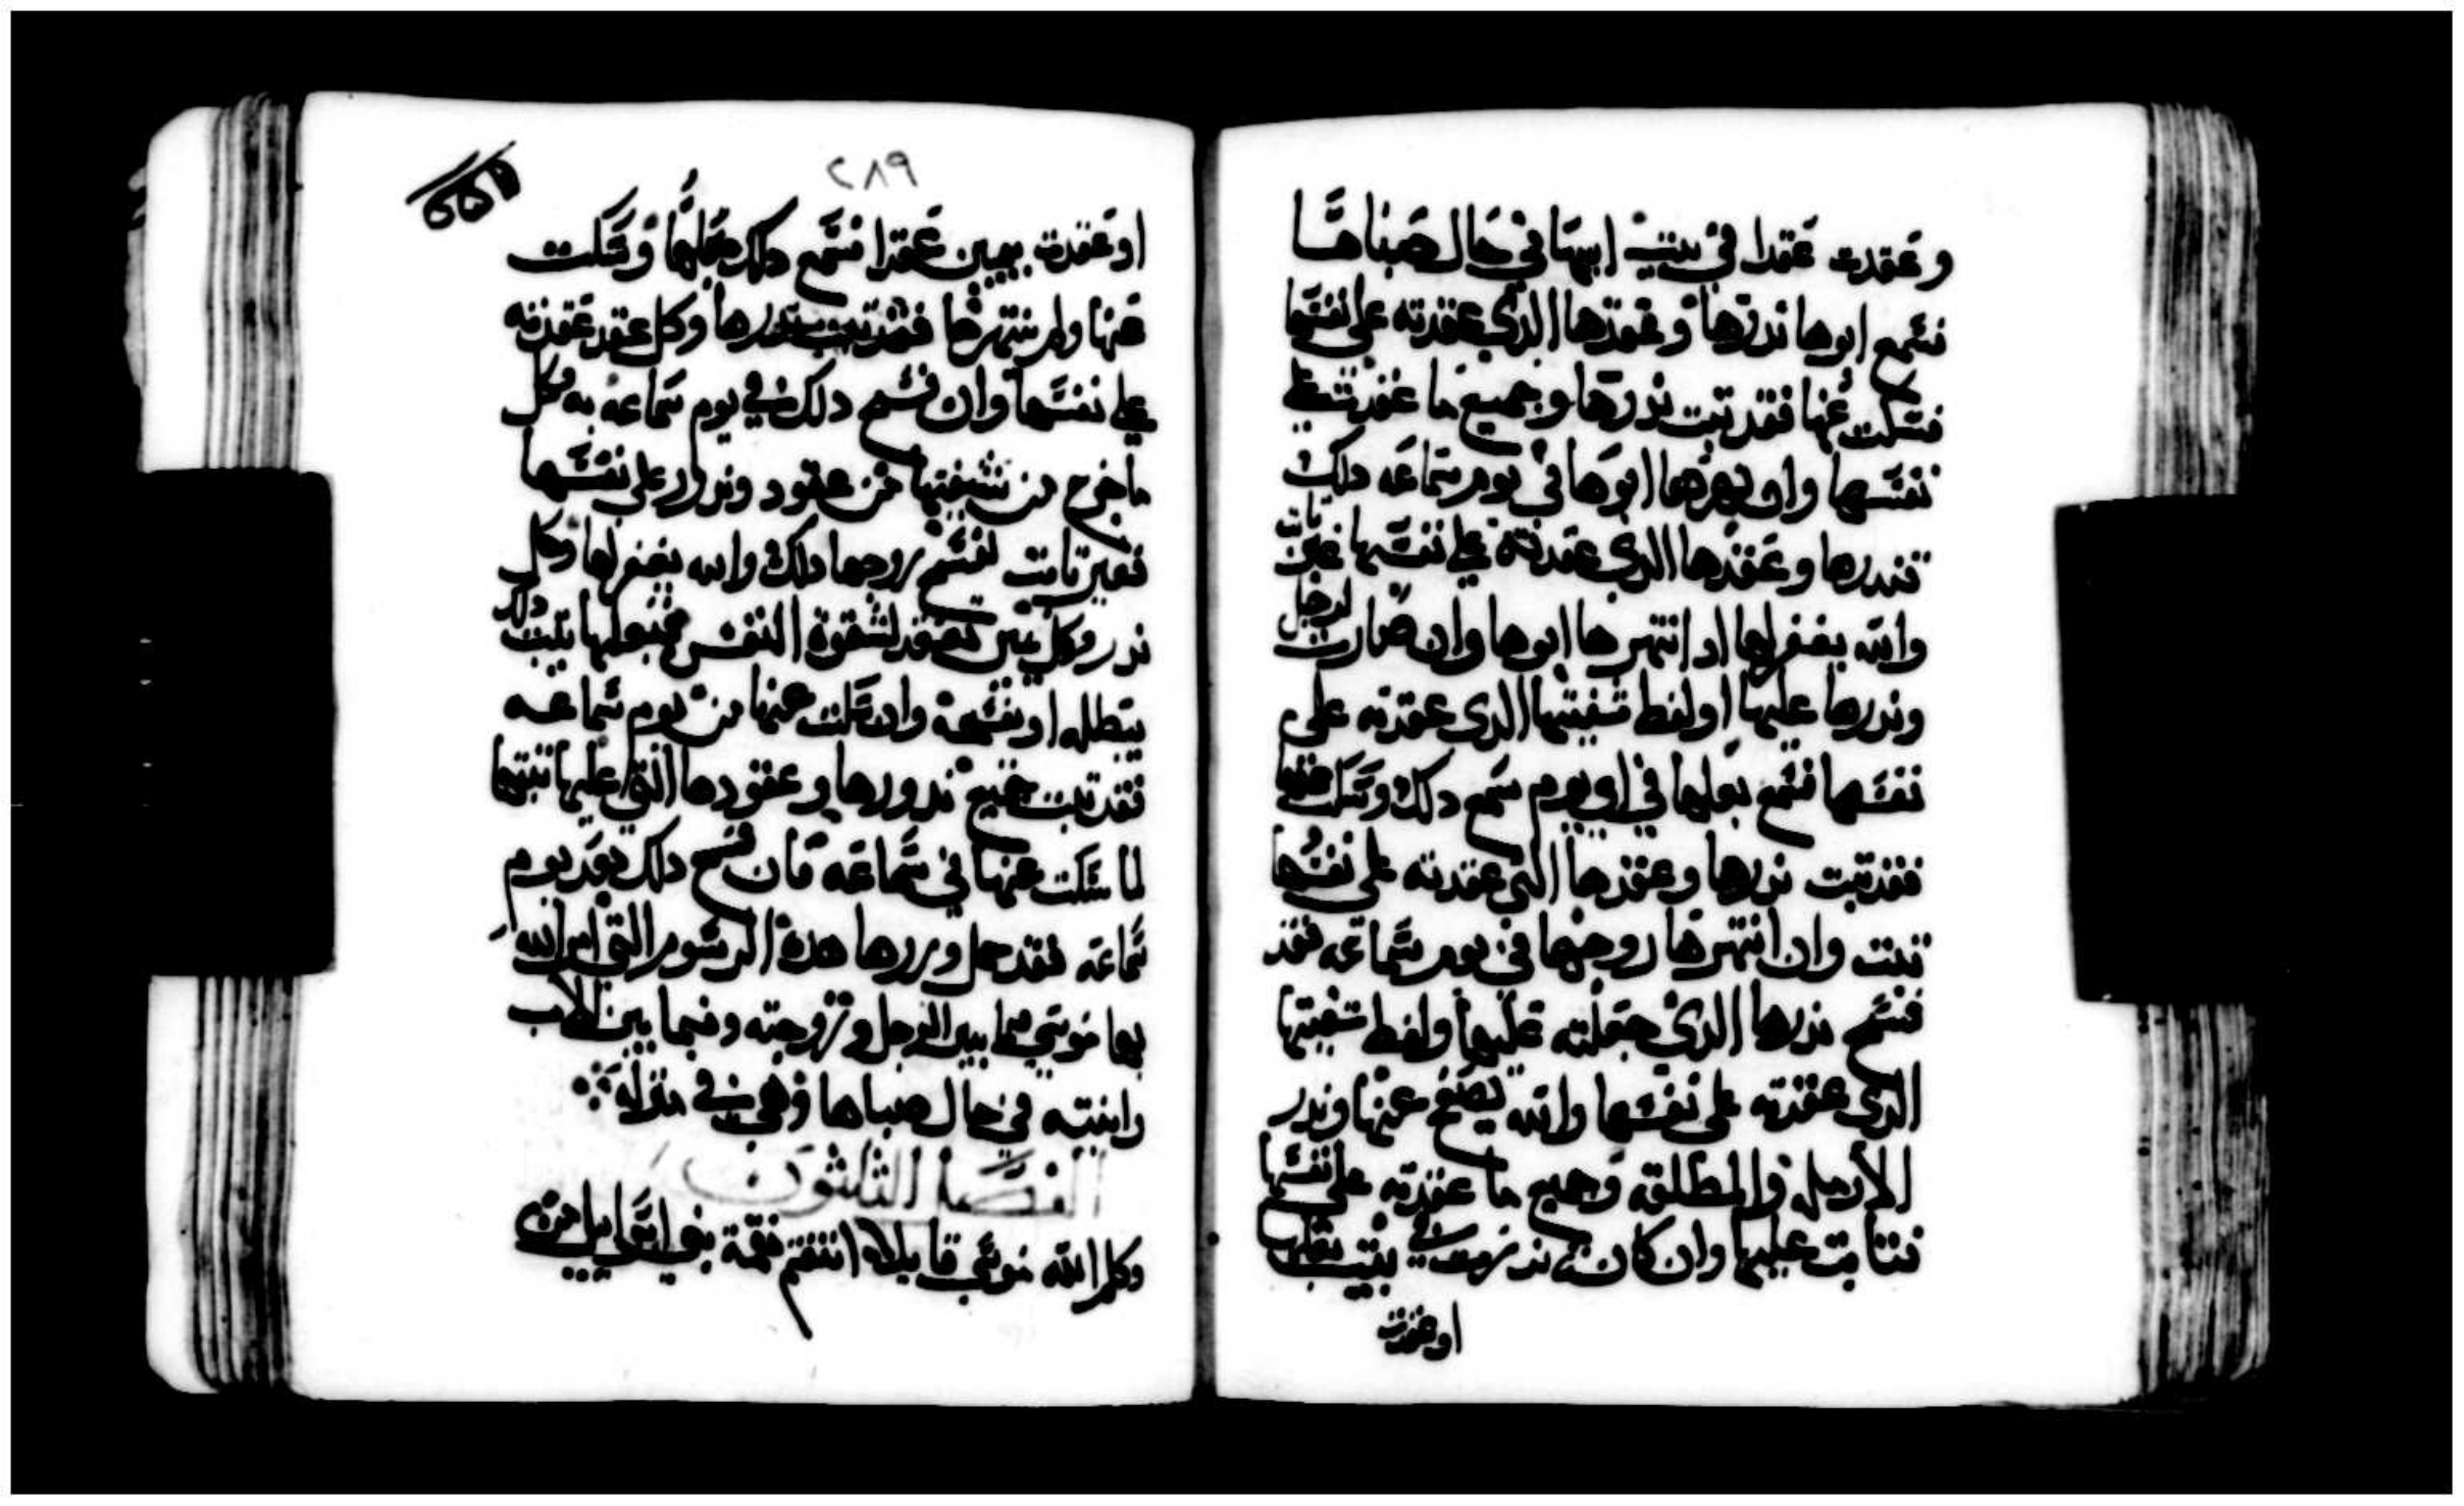 وعقدت عقدا في بيت ابيها في حال صباها
فسمع ابوها ندرها وعقدها الدي عقدته على نفسها
فسكت عنها فقد ثبت ندرها وجميع ما عقدت على
نفسها وان نهرها ابوها في يوم سماعه دلك
فندرها وعقدها الدي عقدته على نفسها غير ثابت
والله يغفر لها اد انتهرها ابوها وان صارت لرجل
وندرها عليها او لفظ شفيتها الدي عقدته على
نفسها فسمع بعلها في اي يوم سمع دلك وسكت عنها
فقد ثبت ندرها وعقدها التي عقدته على نفسها
ثبتت وان انتهرها زوجها في يوم سماعه فقد
فسخ ندرها الدي جعلته عليها ولفظ شفيتها
الدي عقدته على نفسها والله يصفح عنها وندر
الارمل والمطلقه وجميع ما عقدته على نفسها
فثابت عليها وان كان ندرت في بيت بعلها
او عقدت
٢٨٩
او عقدت بيمين عقدا فسمع دلك بعلها وسكت
عنها ولم ينتهرها فقد ثبت ندرها وكل عقد عقدته
على نفسها وان فسخ دلك في يوم سماعه به فكل
ما خرج من شفيتها من عقود وندور على نفسها
فغير ثابت لفسخ زوجها دلك والله يغفر لها وكل
ندر وكل يمين تعقد لشقوة النفس فبعلها يثبت دلك
يبطله او يفسخه وان سكت عنها من يوم سماعه
فقد ثبت جميع ندورها وعقودها التي عليها ثبتها
لما سكت عنها في سماعه فان فسخ دلك بعد يوم
سماعه فقد حمل وزرها هده الرسوم التي امر الله
بها موسي فيما بين الرجل وزوجته وفيما بين الاب
وابنته في حال صباها وهي في منزله
الفصل الثلثون
وكلم الله موسي قايلا انتقم نقمة بني اسراييل من